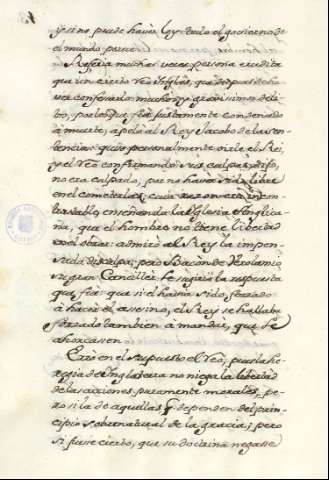 y si no puede haver ley tanto el govierno de
el mundo perece.
Referia muchas veces persona erudita
que un cierto Reo Inglès, que despues de ha
ver confesado muchos y gravisimos deli
tos, por los que fuè justamente condenado
à muerte, apelò al Rey Jacobo de la sen
tencia: quiso personalmente oirle el Rey,
y el Reo confirmando sus culpas, dijo,
no era culpado, por no haver sido libre
en el cometerlas, cuia razon era incon
trastable, enseñando la Iglesia Anglica
na, que el hombre no tiene libertad
en el obrar: admirò al Rey la impen
sada disculpa; pero Bacon de Verulamio
su gran Canciller le sugiriò la respuesta
que fuè: que si el havia sido forzado
à hacer el asesino, el Rey se hallaba
forzado tambien à mandar, que le
ahorcasen.
Erro en el supuesto el Reo, pues la he
regia de Inglaterra no niega la libertad
de las acciones puramente morales, pe
ro si la de aquellas q dependen del prin
cipio sobrenatural de la gracia; pero
si fuese cierto, que su doctrina negasse